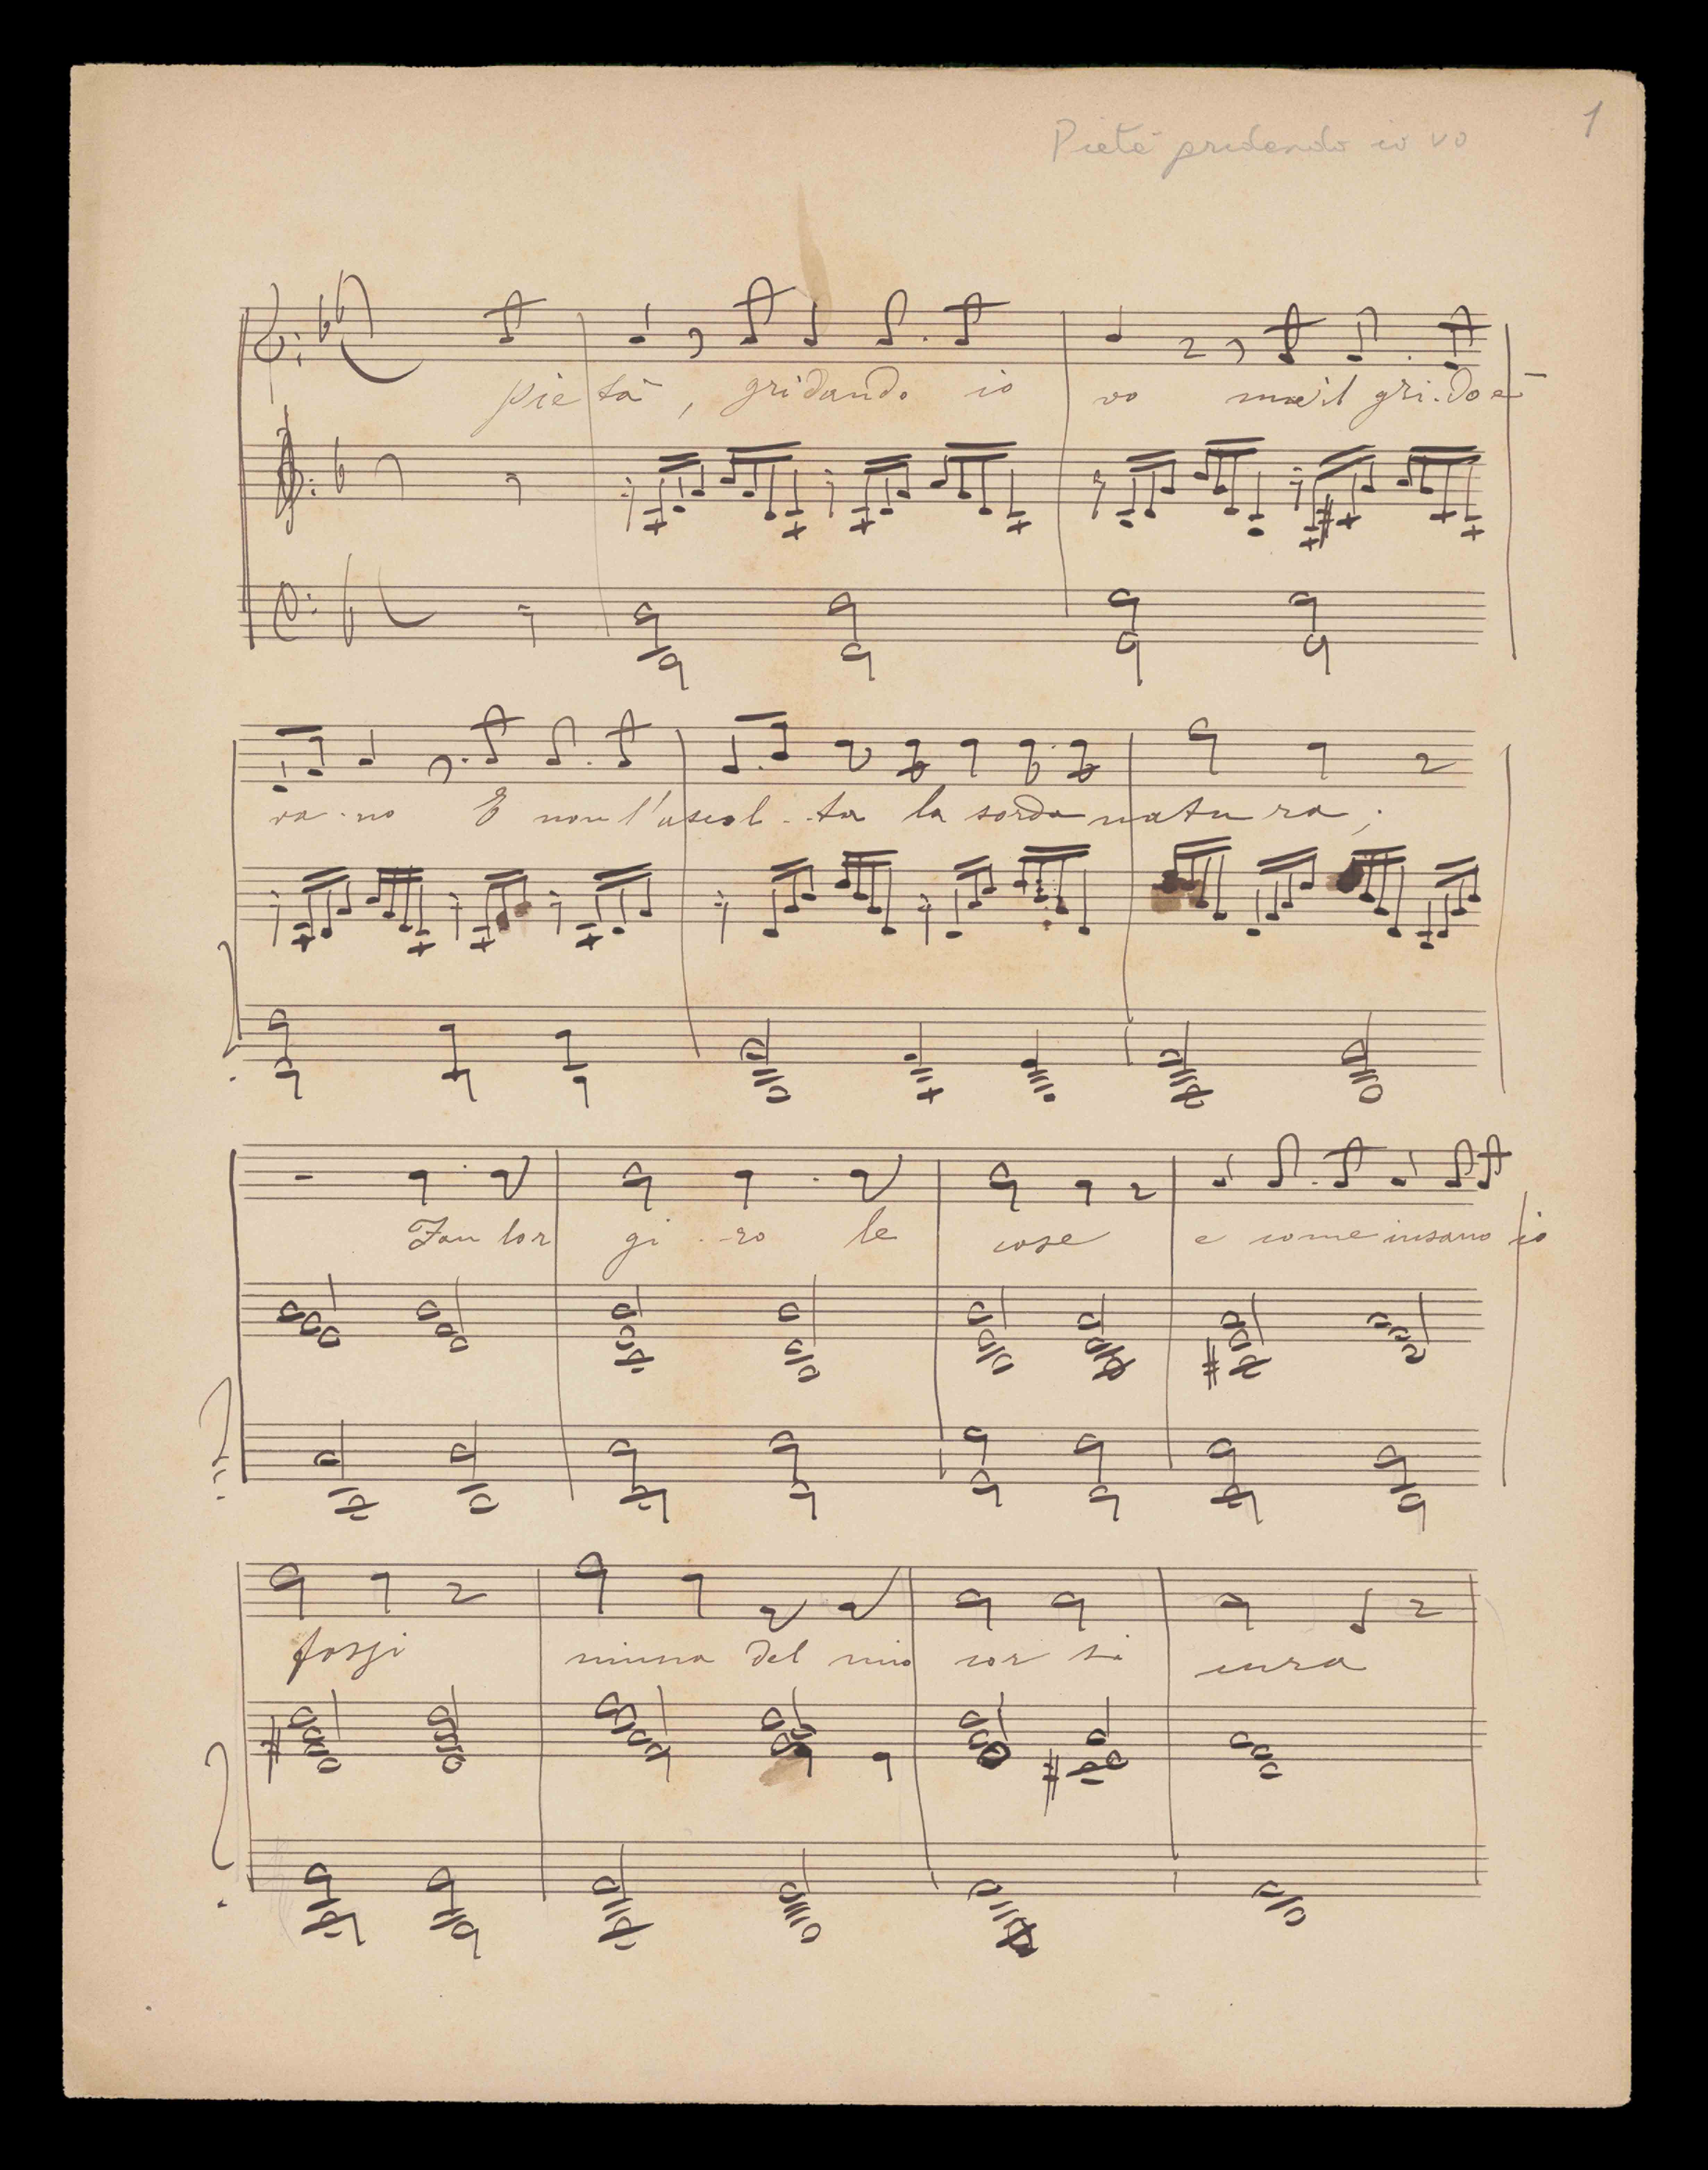 1
Pietà gridando io vo
pie tà, gridando io vo ma il gri. do è
va. no E non l'ascol. . ta la sorda natu ra;
Fan lor gi . . ro le cose e come insano io
fossi niuna del mio cor si cura